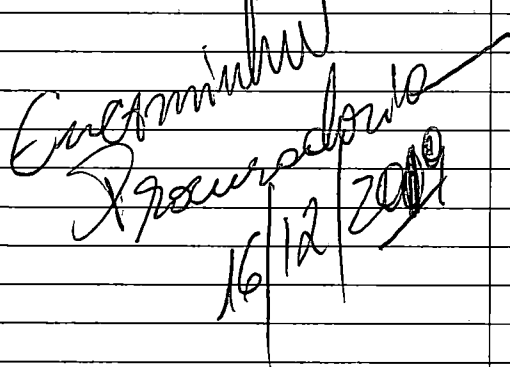 Encaminhu
Procuradoria
16/12/2009